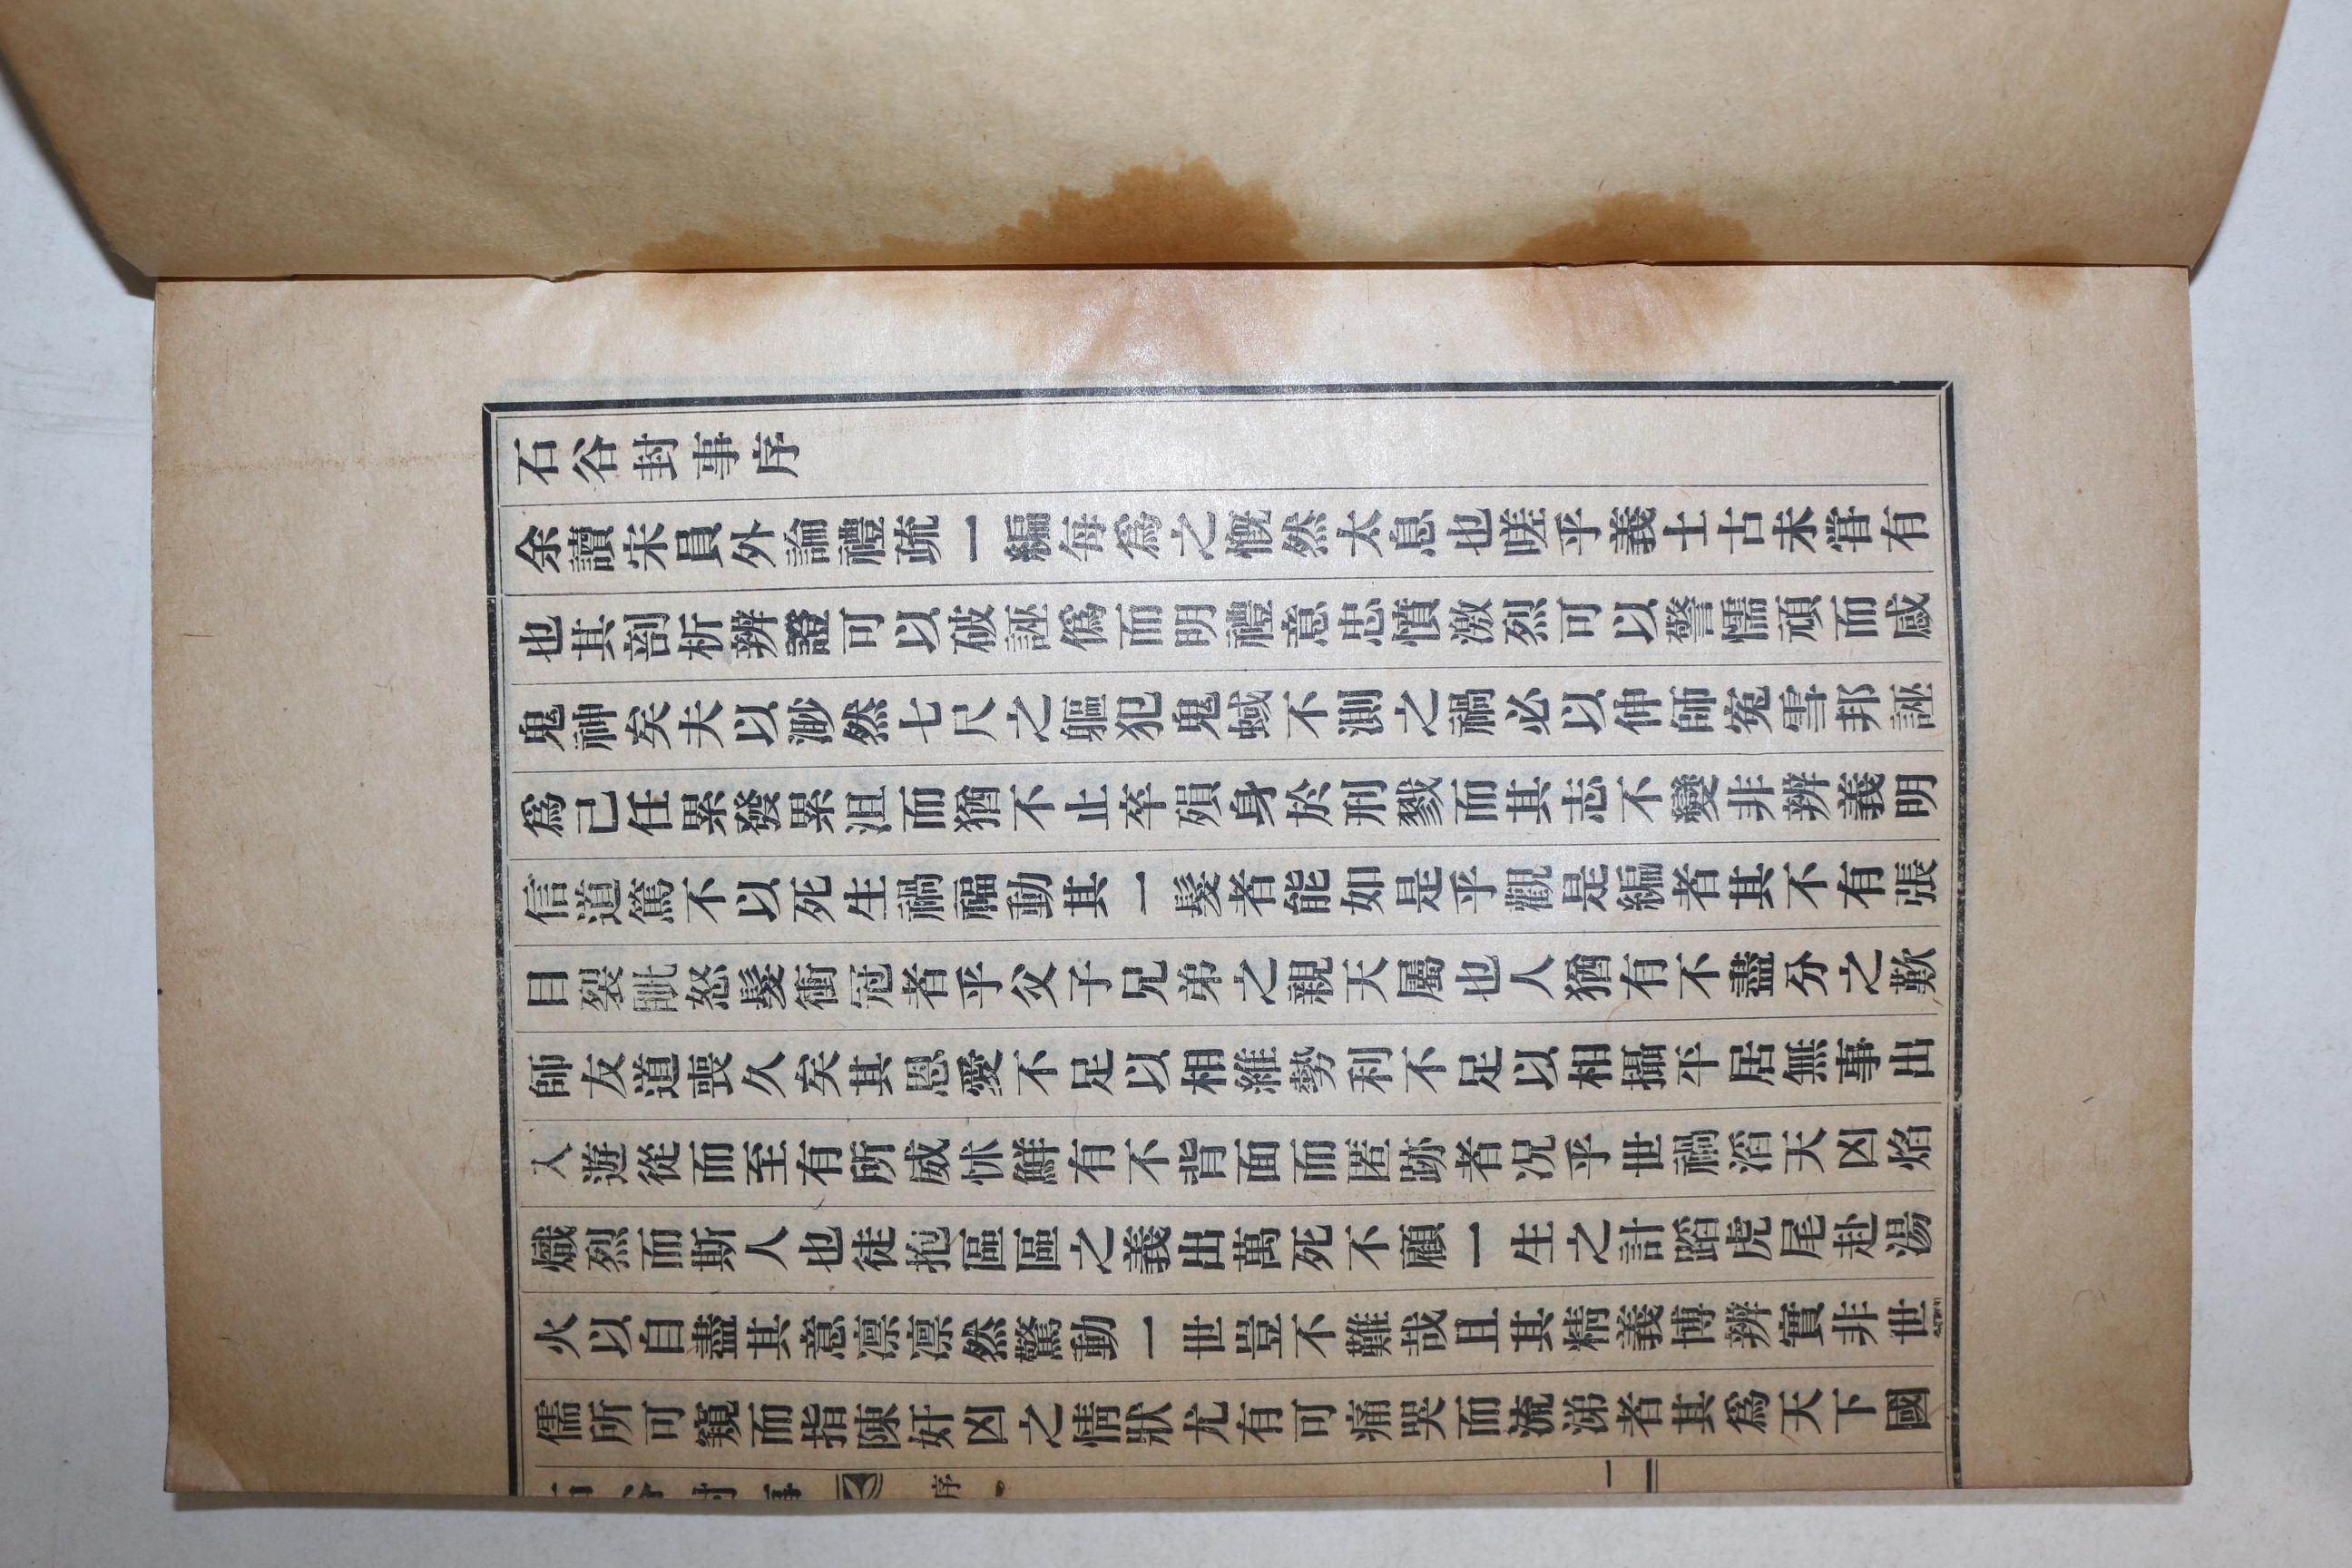 石谷封事序
余讀宋員外論禮疏一編每爲之慨然太息也嗟乎義士古未嘗有
也其剖析辨證可以破誣僞而明禮意忠憤激烈可以警懦頑而感
鬼神矣夫以渺然七尺之軀犯鬼蜮不測之禍必以伸師寃雪邦誣
爲己任累發累沮而猶不止卒殞身於刑戮而其志不變非辨義明
信道篤不以死生禍福動其一髮者能如是乎觀是編者其不有張
目裂眦怒髮衝冠者乎父子兄弟之親天屬也人猶有不盡分之歎
師友道喪久矣其恩愛不足以相維勢利不足以相攝平居無事出
入遊從而至有所威怵鮮有不背面而匿跡者况乎世禍滔天凶焰
熾烈而斯人也徒抱區區之義出萬死不顧一生之計蹈虎尾赴湯
火以自盡其意凛凛然驚動一世豈不難哉且其精義博辨實非世
儒所可窺而指陳奸凶之情狀尤有可痛哭而流涕者其爲天下國
石谷封事 序 一